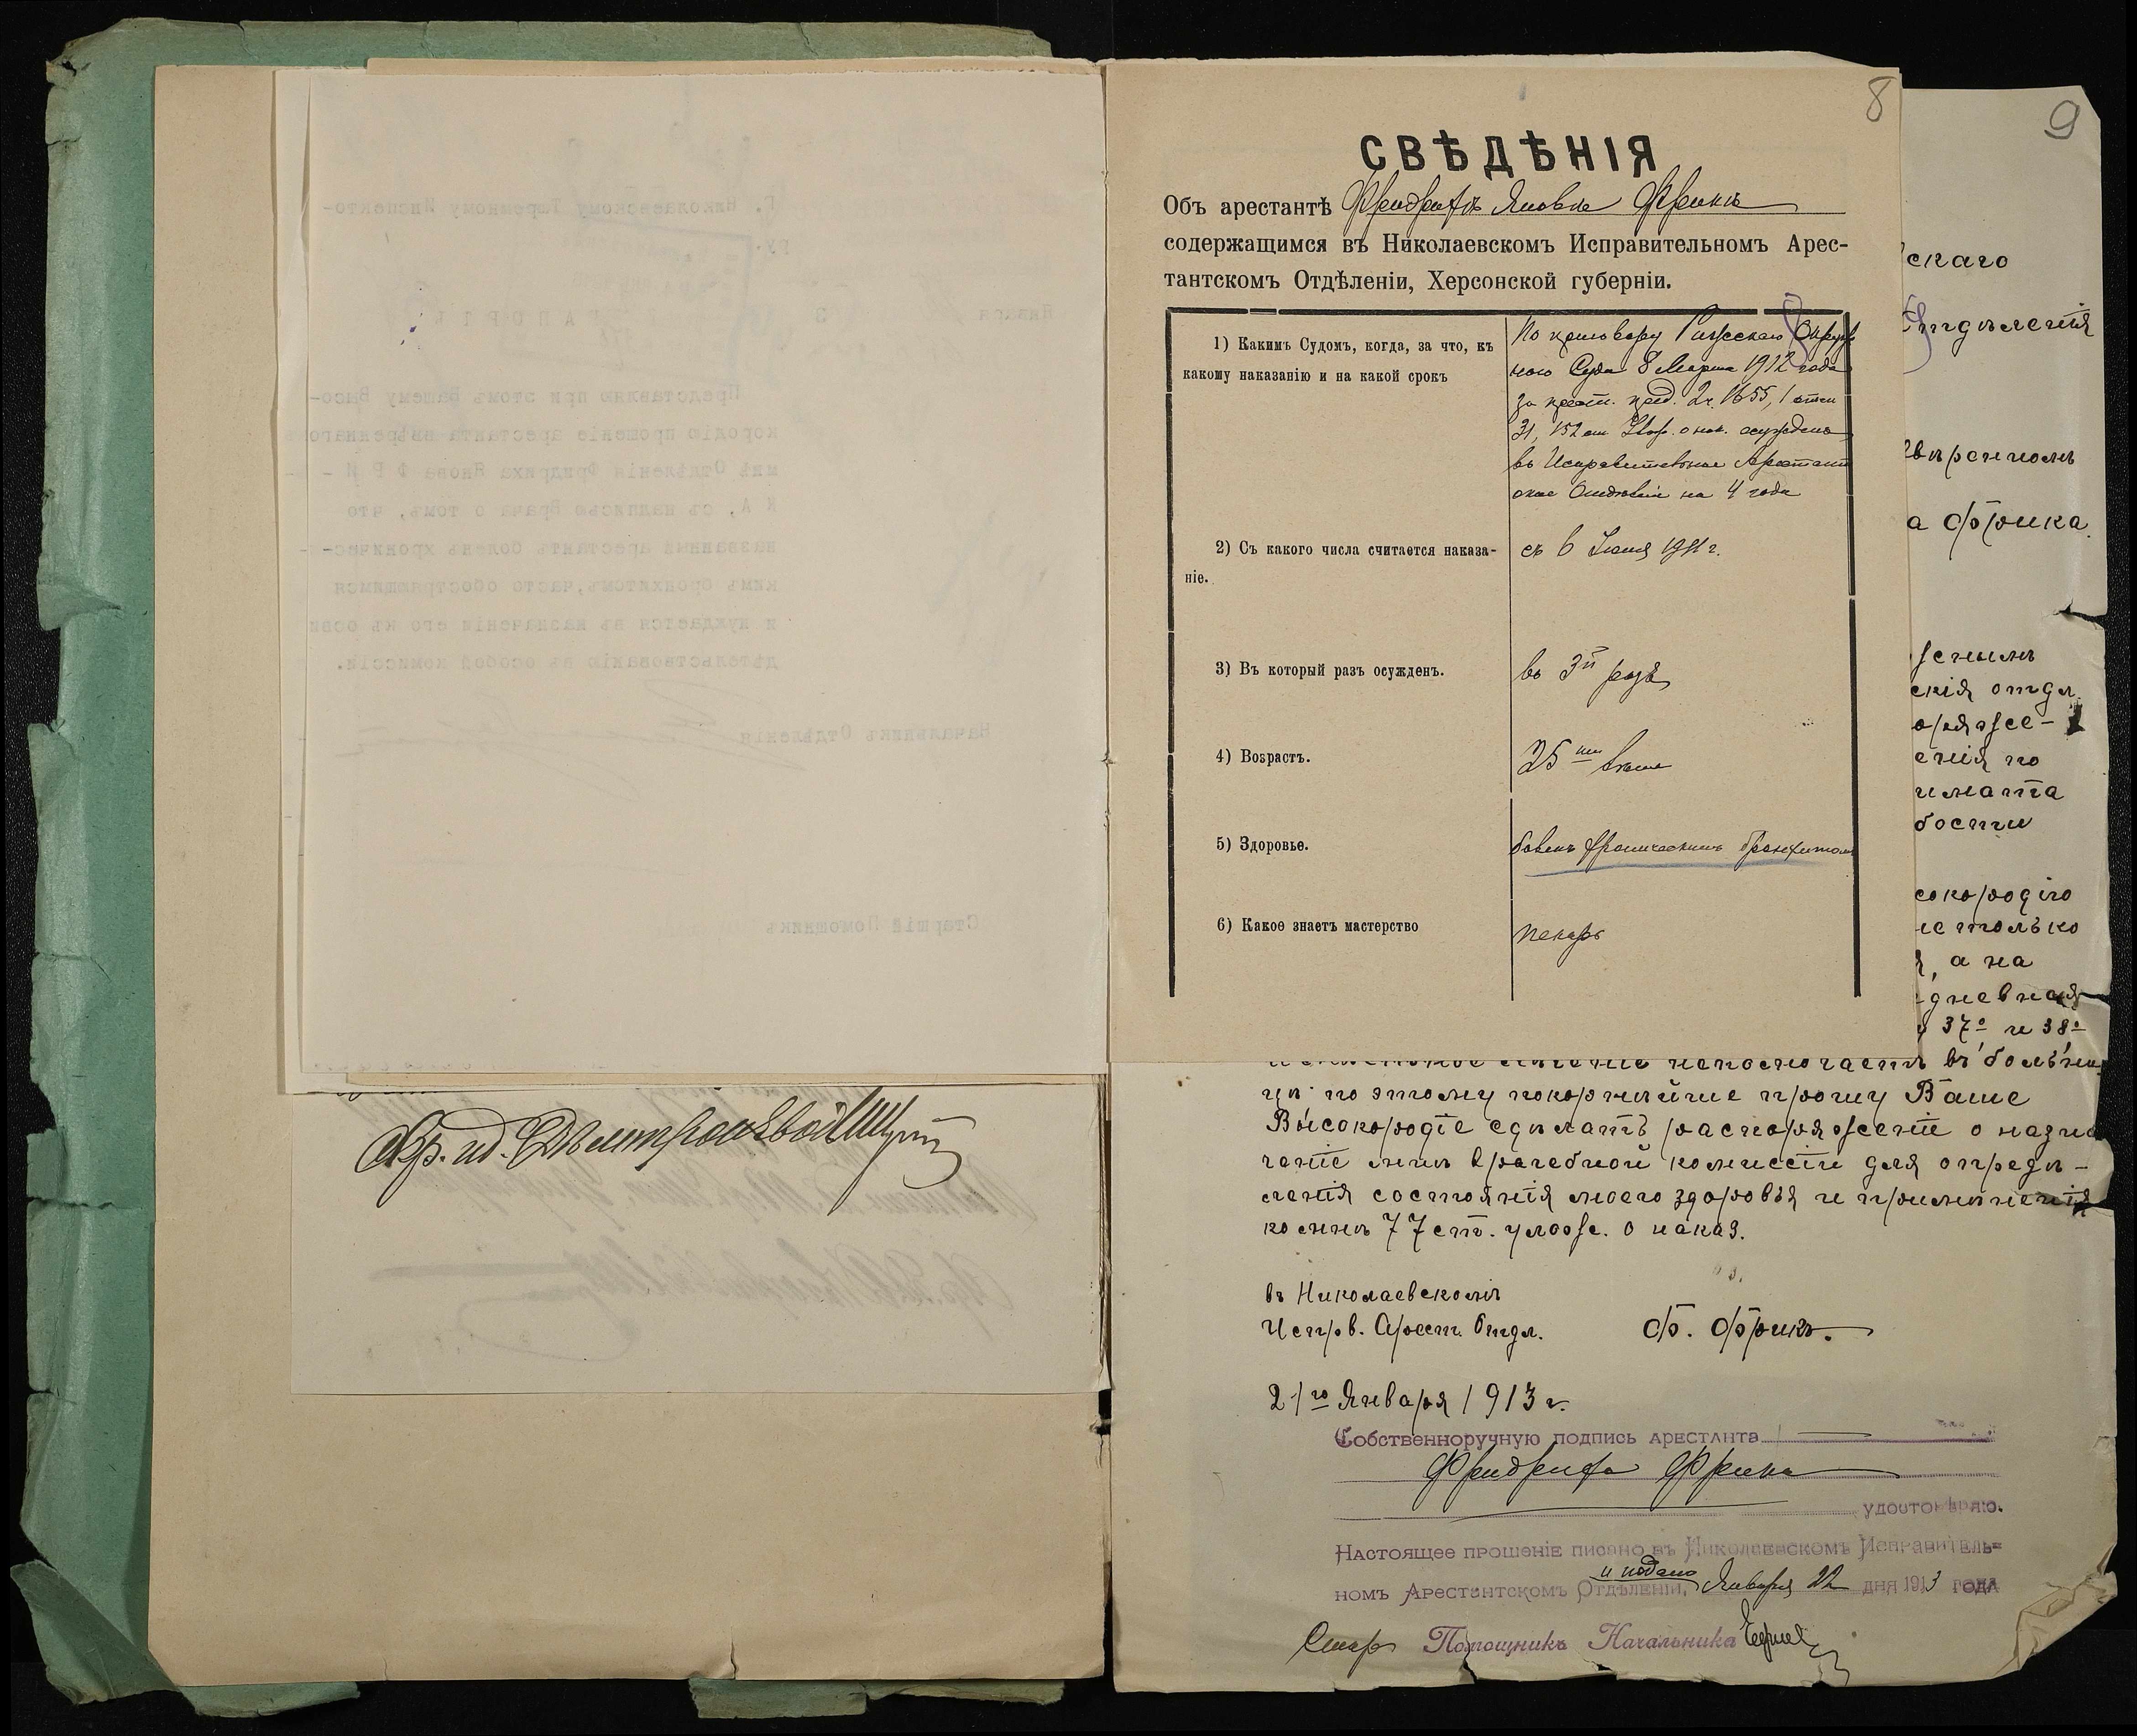 Г. Николаевскому Тюремному Инспекто-
ру.
РАПОРТЪ
Представляю при этомъ Вашему Высо-
кородію прошеніе арестанта ввѣреннаго
мнѣ Отдѣленія Фридриха Якова ФРИ-
КА, съ надписью Врача о томъ, что
названный арестантъ боленъ хроничес-
кимъ бронхитомъ, часто обостряющимся
и нуждается въ назначеніи его къ осви
дѣтельствованію въ особой комиссіи.
Начальникъ Отдѣленія
Старшій Помощникъ
8
СВѢДѢНІЯ
Объ арестантѣ Фридрихъ Яковъ Фрикъ
содержащимся въ Николаевскомъ Исправительномъ Арес-
тантскомъ Отдѣленіи, Херсонской губерніи.
1) Какимъ Судомъ, когда, за что, къ
какому наказанію и на какой срокъ
По приговору Рижскаго Окруж
наго Суда 8 Марта 1912 года
за 2 ч. 1655, 1
31, 152 ст. Улож. о нак. осужденъ
въ Исправительное Арестант
ское Отдѣленіе на 4 года
2) Съ какого числа считается наказа-
ніе.
съ 6 1911 г.
3) Въ который разъ осужденъ.
въ 3й разъ
4) Возрастъ.
25
5) Здоровье.
боленъ хроническимъ бронхитомъ
6) Какое знаетъ мастерство
пекарь
9
скаго
Отдѣленія
ввѣренномъ
а Фрика.
скія отдѣл.
оряже-
енія по
климата
бости
сокородіго
не только
, а на
дневная
37º и 38º
въ больни
цѣ по этому покорнѣйше прошу Ваше
Высокородіе сдѣлать распоряженіе о назна
ченіе мнѣ врачебной комиссіи для опредѣ-
ленія состоянія моего здоровья и примѣненія
ко мнѣ 77 ст. улож. о наказ.
въ Николаевскомъ
Испрв. Арест. Отдл.
Ф. Фрикъ.
21го Января 1913 г.
Собственноручную подпись арестанта
Фридриха Фрика
удостовѣряю.
Настоящее прошеніе писано въ Николаевскомъ Исправитель=
и подано
номъ Арестантскомъ Отдѣленіи, Января 22 дня 1913 года
Старш Помощникъ Начальника